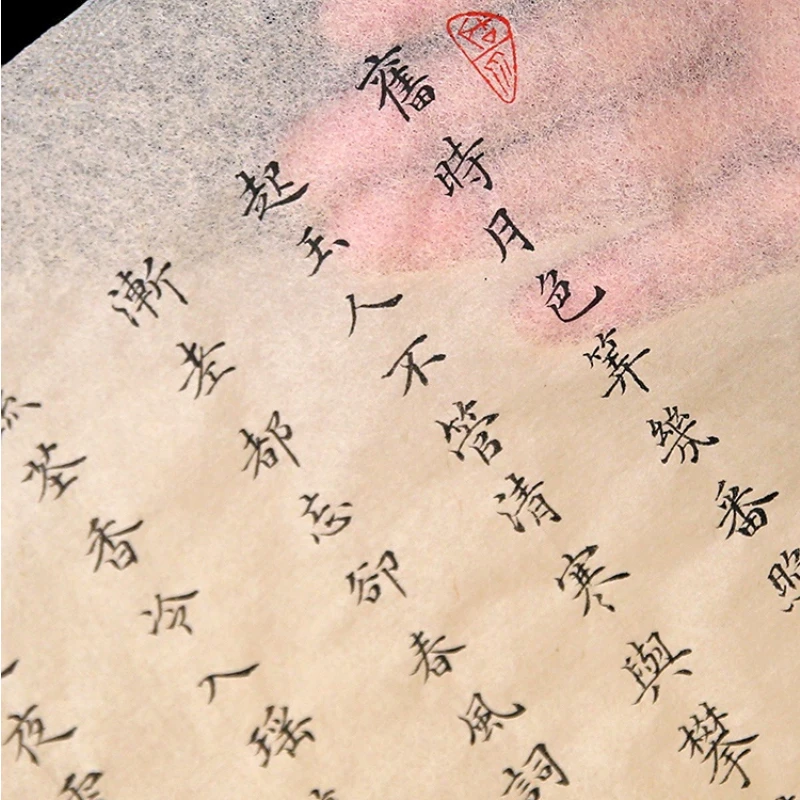 舊時月色筭幾番照
起玉人不管清寒與攀
漸老都忘卻春風詞
疏花香冷入瑶
夜雪